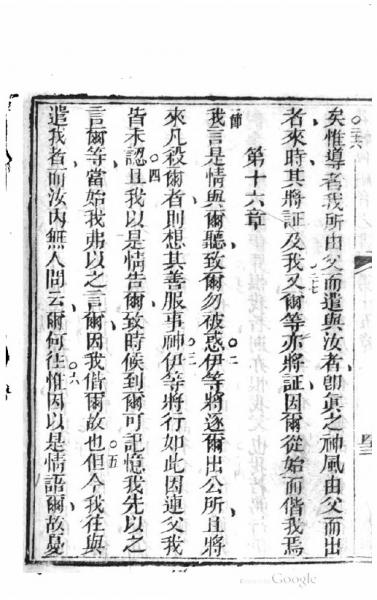 ○二六
矣惟導者我所由父而遣與汝者卽眞之神風由父而出
○二七
者來時其將証及我又爾等亦將証因爾從始而偕我焉
第十六章
節
我言是情與爾聽致爾勿被惑伊等將逐爾出公所且將
○二
來凡殺爾者則想其善服事神伊等將行如此因連父我
○三
皆未認且我以是情告爾致時候到爾可記憶我先以之
○四
言爾等當始我弗以之言爾因我偕爾故也但今我往與
○五
遣我者而汝內無人問云爾何往惟因以是情語爾故憂
○六
Google